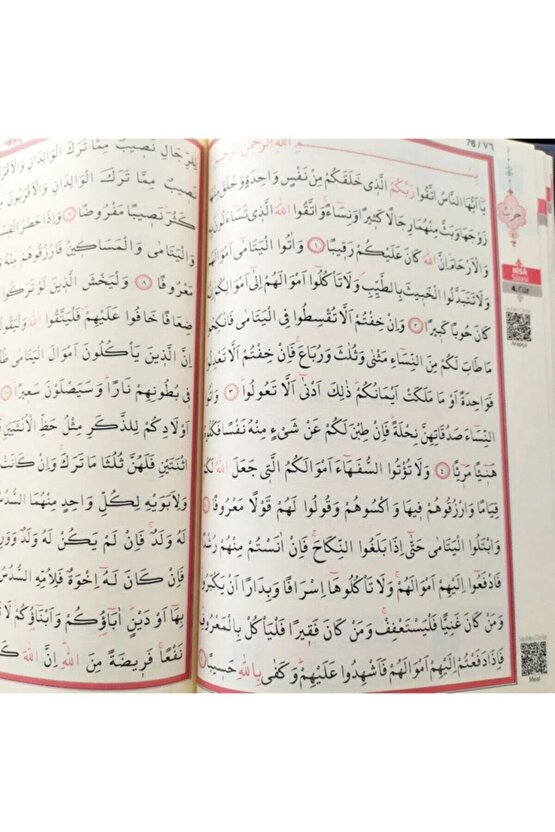 76 / ٧٦
بِسْمِ اللهِ الرَّحْمٰنِ الرَّحِيمِ
يَٓا اَيُّهَا النَّاسُ اتَّقُوا رَبَّكُمُ الَّذِي خَلَقَكُمْ مِنْ نَفْسٍ وَاحِدَةٍ وَخَلَقَ مِنْهَا
زَوْجَهَا وَبَثَّ مِنْهُمَا رِجَالًا كَثِيرًا وَنِسَٓاءً وَاتَّقُوا اللهَ الَّذِي تَسَٓاءَلُونَ
وَالْاَرْحَامَ اِنَّ اللهَ كَانَ عَلَيْكُمْ رَقِيبًا ١ وَاٰتُوا الْيَتَامٰٓى اَمْوَالَهُمْ
وَلَا تَتَبَدَّلُوا الْخَبِيثَ بِالطَّيِّبِ وَلَا تَاْكُلُٓوا اَمْوَالَهُمْ اِلٰٓى اَمْوَالِكُمْ
كَانَ حُوبًا كَبِيرًا ٢ وَاِنْ خِفْتُمْ اَلَّا تُقْسِطُوا فِي الْيَتَامٰى فَانْكِحُوا
مَا طَابَ لَكُمْ مِنَ النِّسَٓاءِ مَثْنٰى وَثُلٰثَ وَرُبَاعَ فَاِنْ خِفْتُمْ اَلَّا تَعْدِلُوا
فَوَاحِدَةً اَوْ مَا مَلَكَتْ اَيْمَانُكُمْ ذٰلِكَ اَدْنٰٓى اَلَّا تَعُولُوا ٣ وَاٰتُوا
النِّسَٓاءَ صَدُقَاتِهِنَّ نِحْلَةً فَاِنْ طِبْنَ لَكُمْ عَنْ شَيْءٍ مِنْهُ نَفْسًا فَكُلُوهُ
هَنِٓيئًا مَرِٓيئًا ٤ وَلَا تُؤْتُوا السُّفَهَٓاءَ اَمْوَالَكُمُ الَّتِي جَعَلَ اللهُ لَكُمْ
قِيَامًا وَارْزُقُوهُمْ فِيهَا وَاكْسُوهُمْ وَقُولُوا لَهُمْ قَوْلًا مَعْرُوفًا ٥
وَابْتَلُوا الْيَتَامٰى حَتّٰٓى اِذَا بَلَغُوا النِّكَاحَ فَاِنْ اٰنَسْتُمْ مِنْهُمْ رُشْدًا
فَادْفَعُٓوا اِلَيْهِمْ اَمْوَالَهُمْ وَلَا تَاْكُلُوهَٓا اِسْرَافًا وَبِدَارًا اَنْ يَكْبَرُوا
وَمَنْ كَانَ غَنِيًّا فَلْيَسْتَعْفِفْ وَمَنْ كَانَ فَقِيرًا فَلْيَاْكُلْ بِالْمَعْرُوفِ
فَاِذَا دَفَعْتُمْ اِلَيْهِمْ اَمْوَالَهُمْ فَاَشْهِدُوا عَلَيْهِمْ وَكَفٰى بِاللهِ حَسِيبًا ٦
NİSÂ
Sûresi
4. Cüz
Arapça
Meal
لِلرِّجَالِ نَصِيبٌ مِمَّا تَرَكَ الْوَالِدَانِ وَالْاَقْرَبُونَ
نَصِيبٌ مِمَّا تَرَكَ الْوَالِدَانِ وَالْاَقْرَبُونَ
كَثُرَ نَصِيبًا مَفْرُوضًا ٧ وَاِذَا حَضَرَ الْقِسْمَةَ
وَالْيَتَامٰى وَالْمَسَاكِينُ فَارْزُقُوهُمْ مِنْهُ
مَعْرُوفًا ٨ وَلْيَخْشَ الَّذِينَ لَوْ تَرَكُوا
ضِعَافًا خَافُوا عَلَيْهِمْ فَلْيَتَّقُوا اللهَ وَلْيَقُولُوا
اِنَّ الَّذِينَ يَاْكُلُونَ اَمْوَالَ الْيَتَامٰى ظُلْمًا
فِي بُطُونِهِمْ نَارًا وَسَيَصْلَوْنَ سَعِيرًا ١٠
اَوْلَادِكُمْ لِلذَّكَرِ مِثْلُ حَظِّ الْاُنْثَيَيْنِ
اثْنَتَيْنِ فَلَهُنَّ ثُلُثَا مَا تَرَكَ وَاِنْ كَانَتْ
وَلِاَبَوَيْهِ لِكُلِّ وَاحِدٍ مِنْهُمَا السُّدُسُ
لَهُ وَلَدٌ فَاِنْ لَمْ يَكُنْ لَهُ وَلَدٌ وَوَرِثَهُ
فَاِنْ كَانَ لَهُٓ اِخْوَةٌ فَلِاُمِّهِ السُّدُسُ
بِهَٓا اَوْ دَيْنٍ اٰبَٓاؤُكُمْ وَاَبْنَٓاؤُكُمْ لَا
نَفْعًا فَرِيضَةً مِنَ اللهِ اِنَّ اللهَ كَانَ